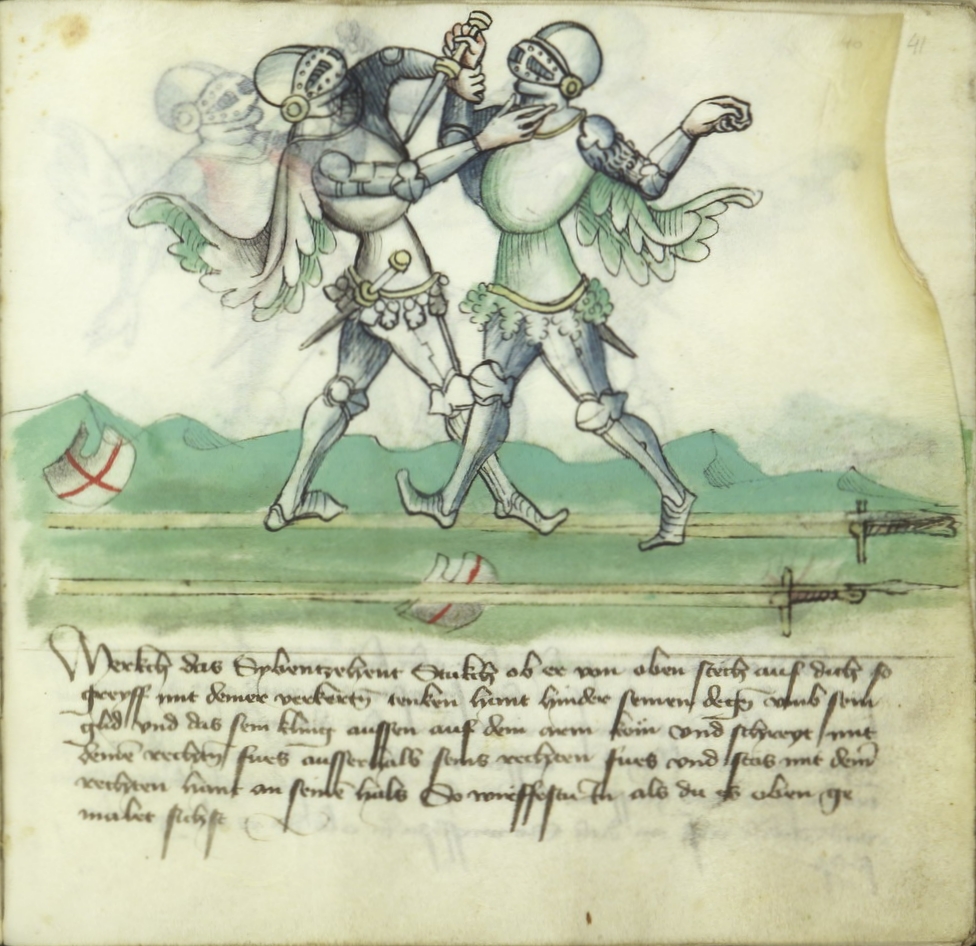 40 41
Merckh das Sybentzehent Stukch ob er von oben stech auf dich so
greyff mit deiner verkertn tenken hant hinder seinen degn vmb sein
glid vnd das sein kling aussen auf dein arem köm vnd schreyt mit
deinē rechtn fues ausserhalb seins rechten fues vnd stos mit deinr̄
rechten hant an seinē hals So wirffestu in als du es oben ge
malet sichst